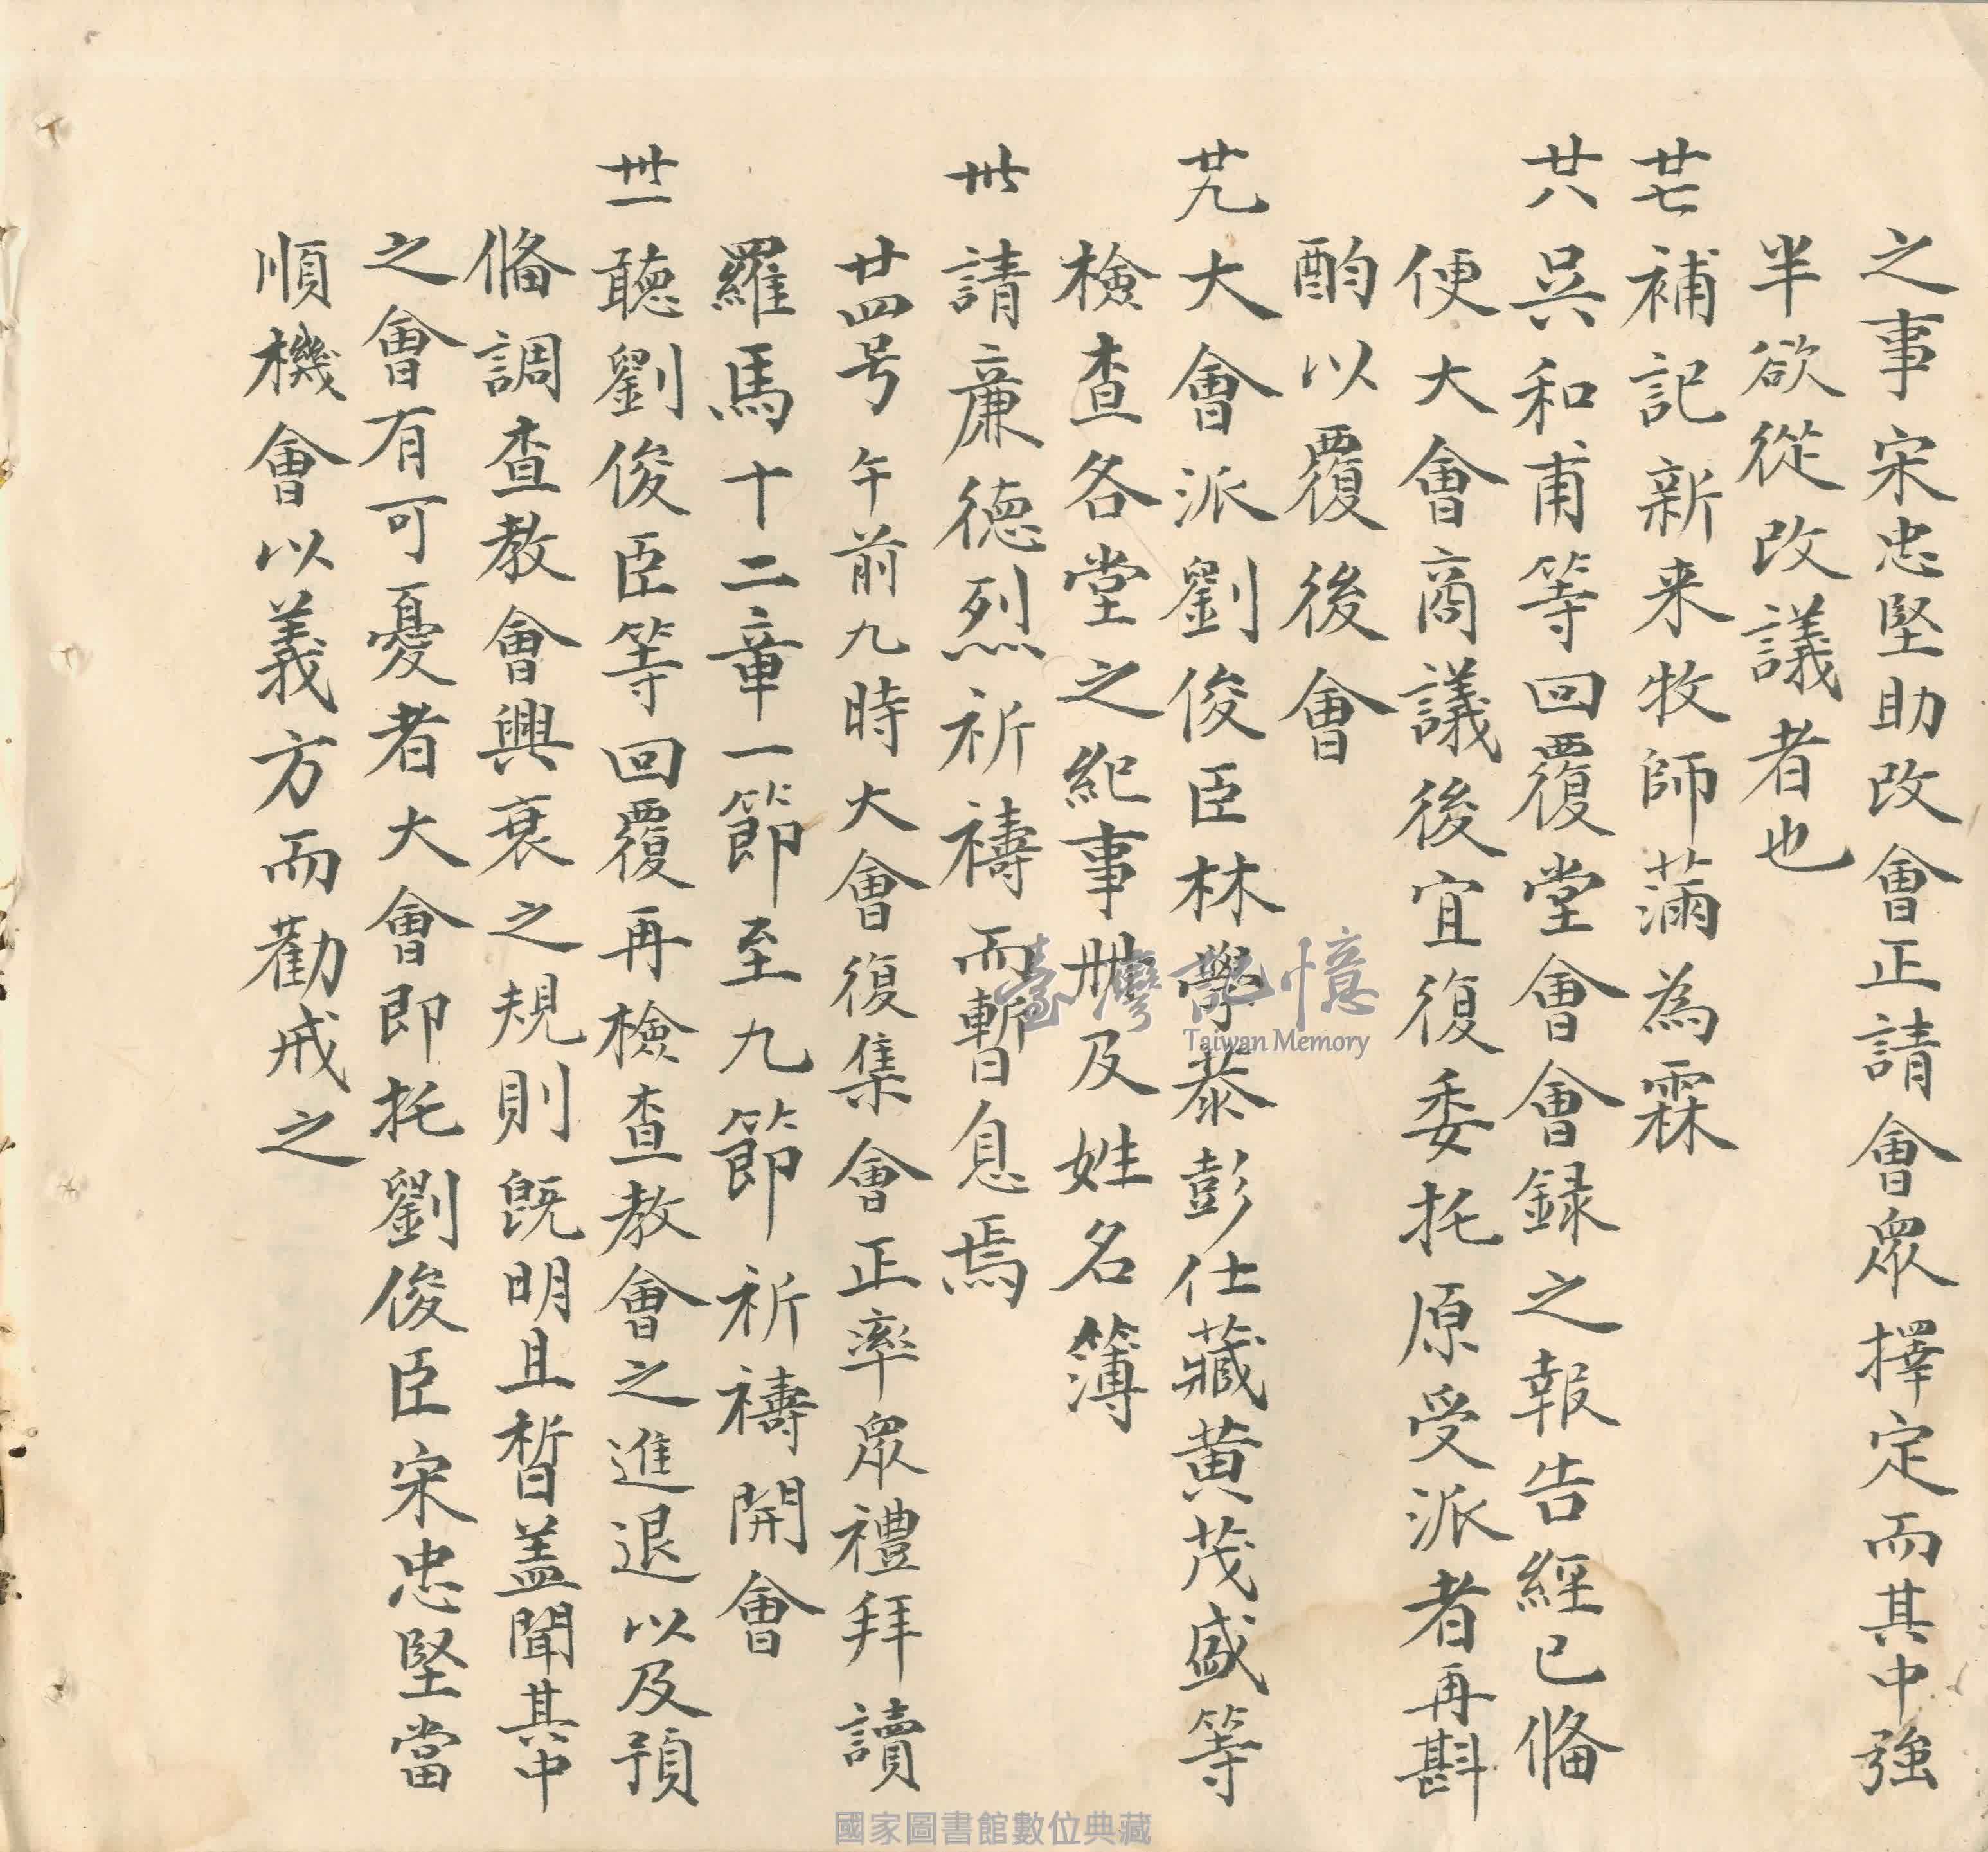 之事宋忠堅助改會正請會眾擇定而其中強
半欲從改議者也
廿七補記新来牧師滿為霖
廿八吳和甫等回覆堂會會録之報告經已俻
便大會商議後宜復委托原受派者再斟
酌以覆後會
廿九大會派劉俊臣林學恭彭仕藏黃茂盛等
檢查各堂之紀事冊及姓名簿
卅請廉德烈祈禱而暫息焉
廿四号午前九時大會復集會正率眾禮拜讀
羅馬十二章一節至九節祈禱開會
卅一聽劉俊臣等回覆再檢查教會之進退以及預
俻調查教會興衰之規則既明且晳盖聞其中
之會有可憂者大會即托劉俊臣宋忠堅當
順機會以義方而勸戒之
臺灣記憶
Taiwan Memory
國家圖書館數位典藏